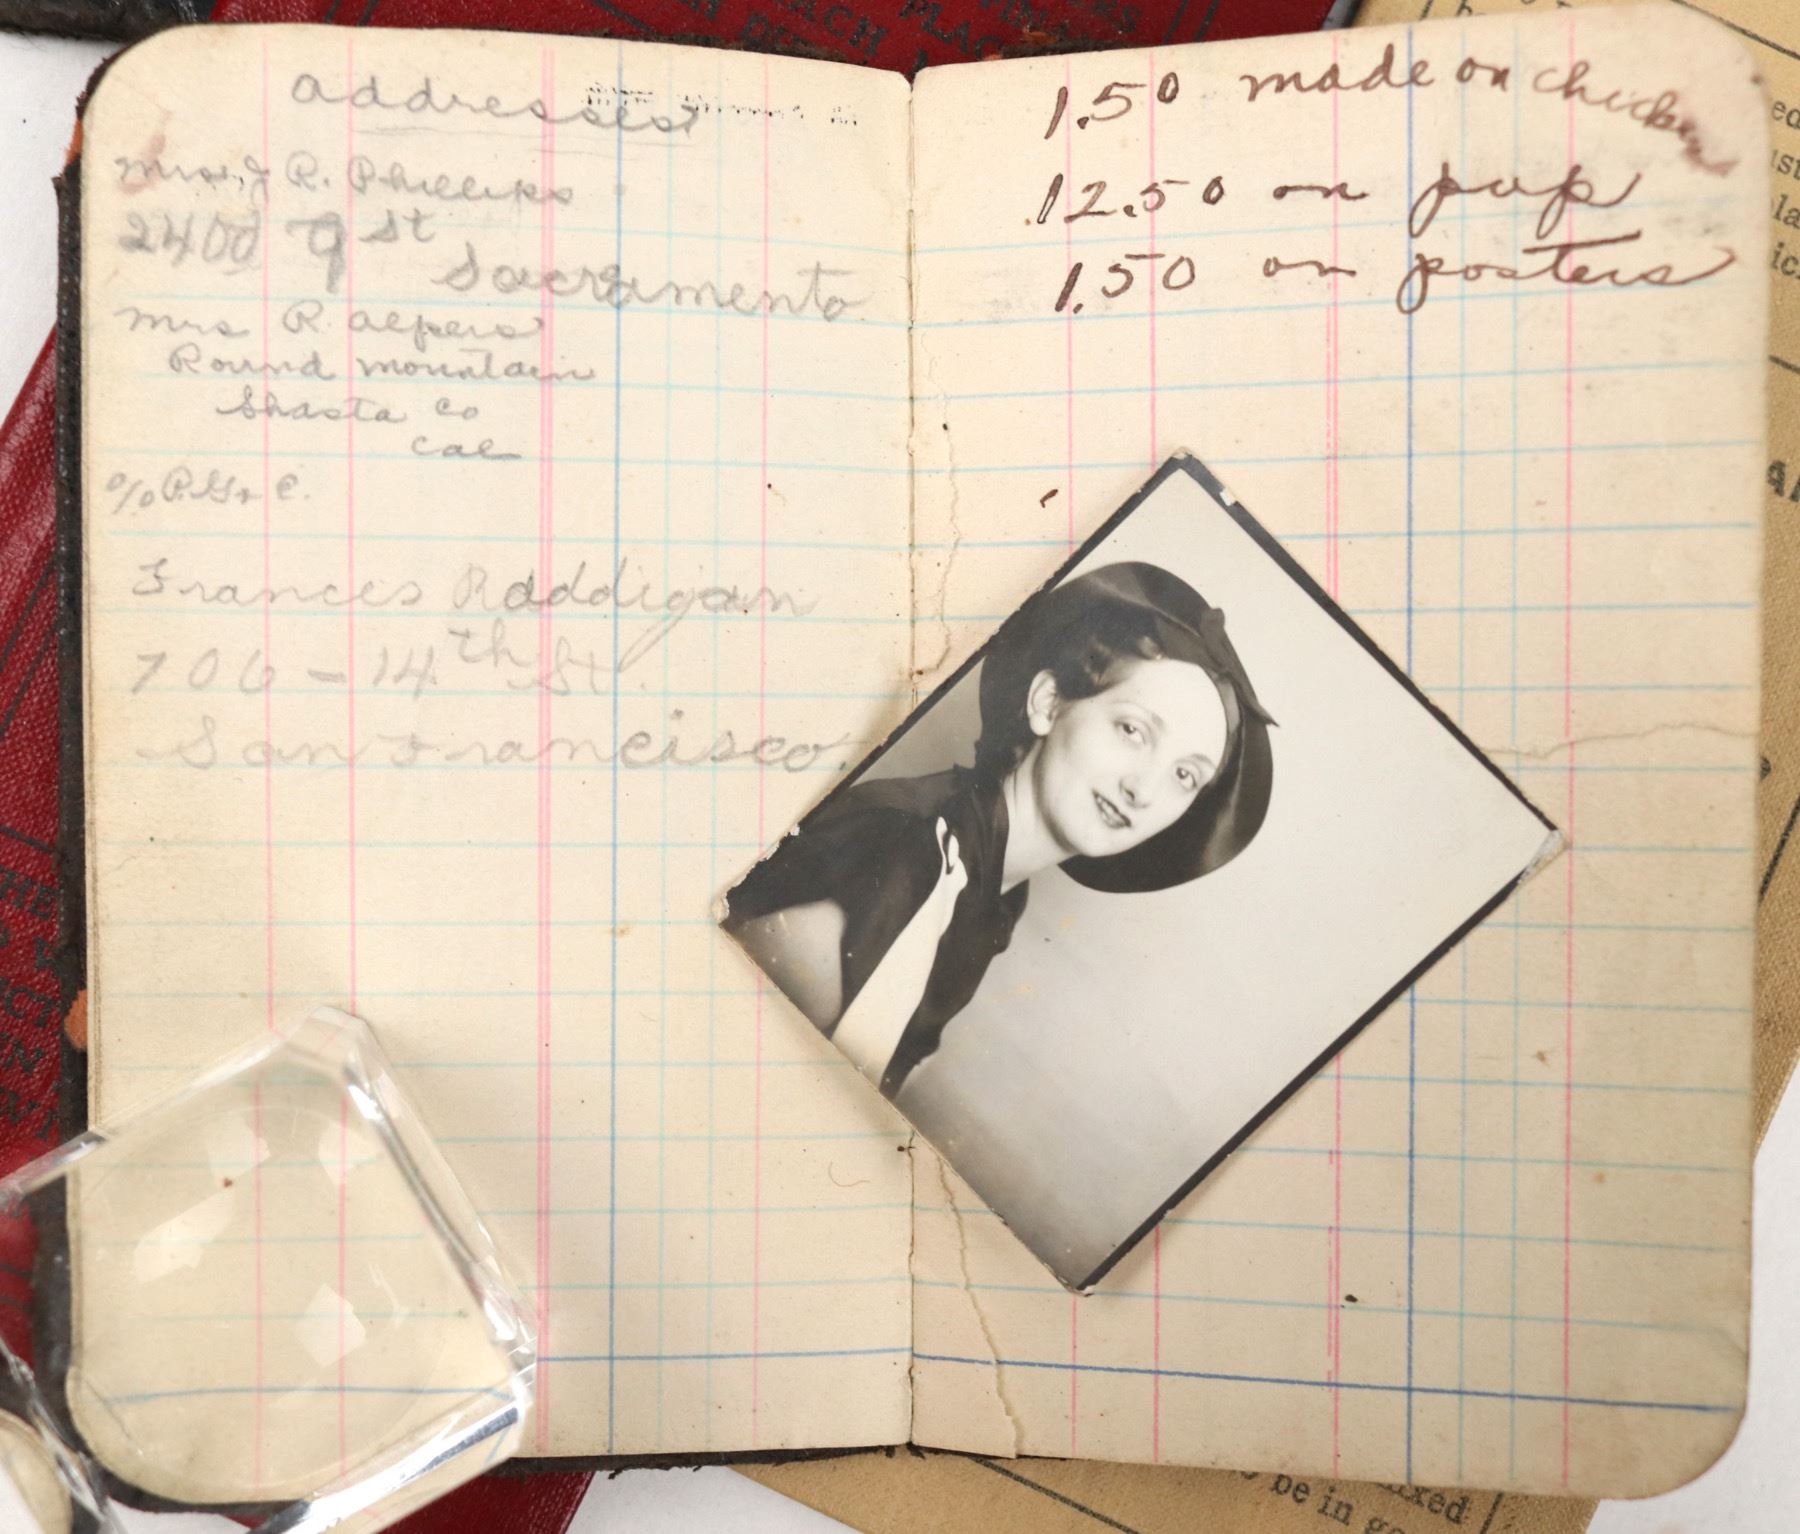 addresses
Mrs J R. Phillips
2400 Q St
Sacramento
Mrs R. Alpers
Round mountain
Shasta Co
Cal
% P.G. & E.
Frances Raddigan
706 - 14th St.
San Francisco.
1.50 made on chicken
12.50 on pup
1.50 on posters
be in